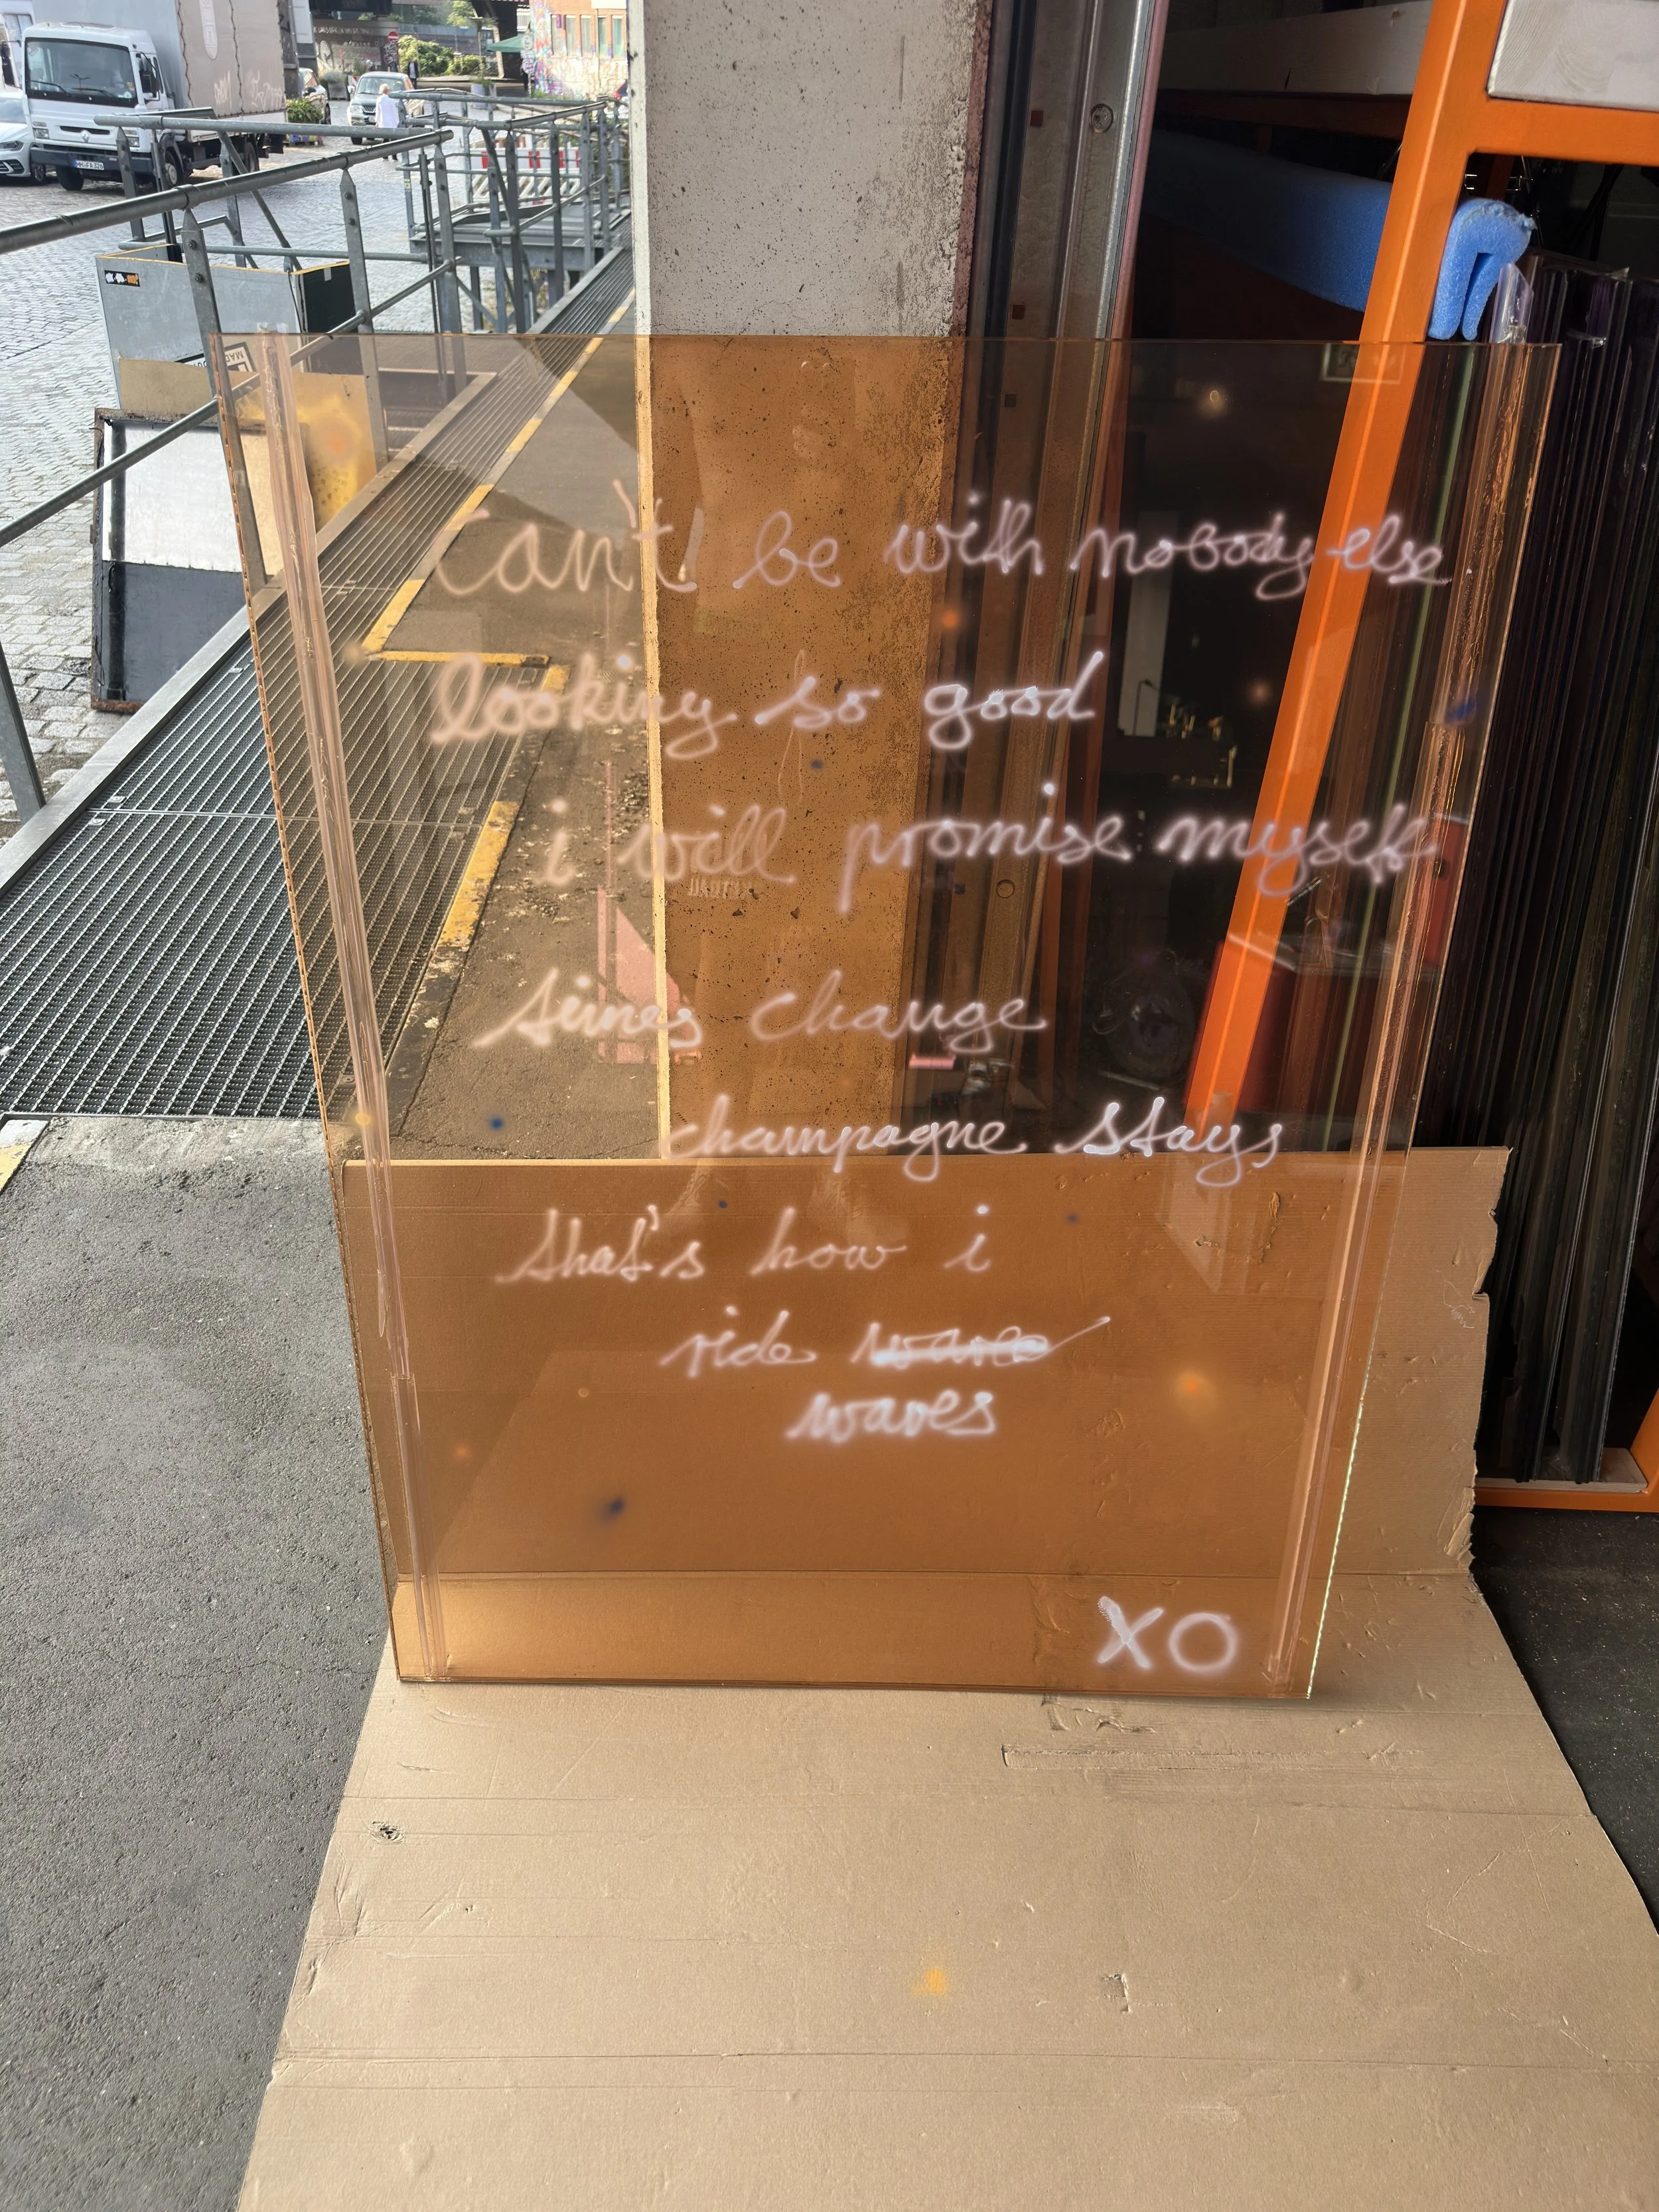 can't be with nobody else
looking so good
i will promise myself
times change
champagne stays
that's how i
ride waves
waves
XO